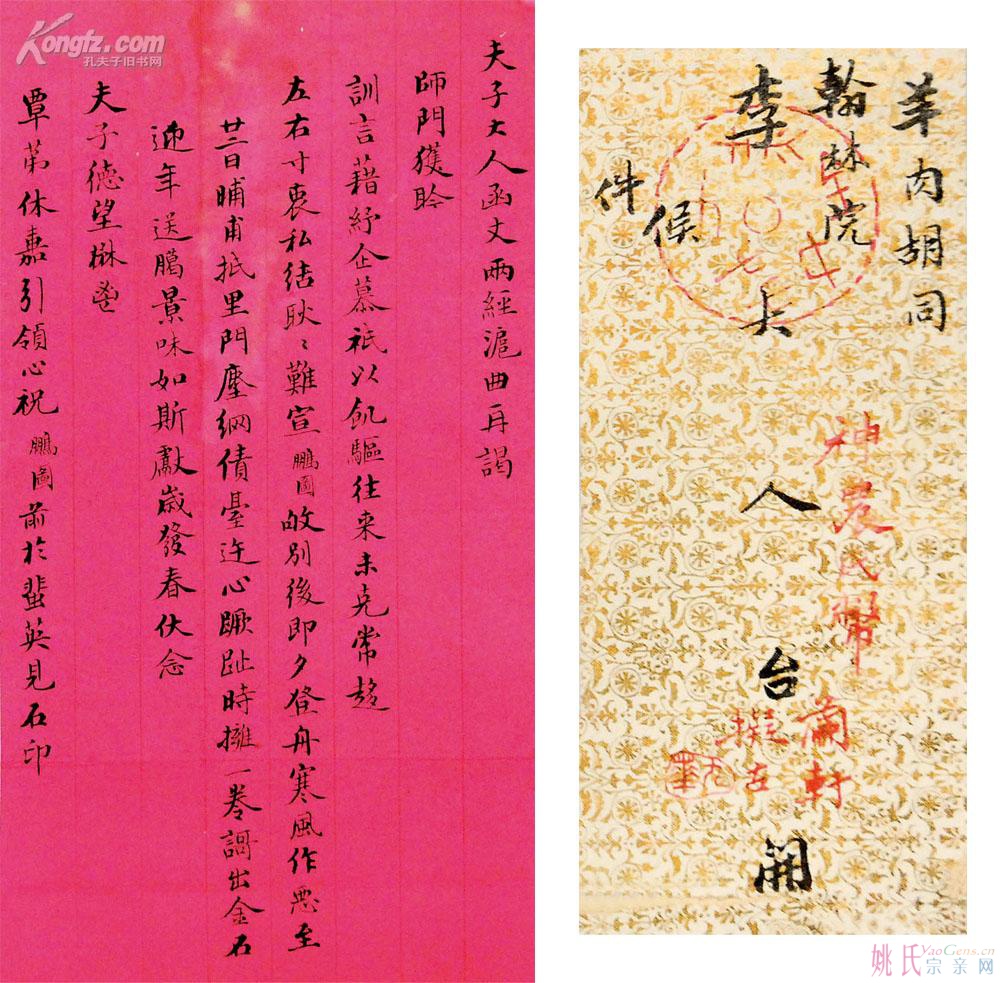 Kongfz.com
孔夫子旧书网
夫子大人函丈兩經滬曲再謁
師門獲聆
訓言藉紓企慕祇以飢驅往来未克常趨
左右寸衷私結耿〻難宣鵬圖敂別後即夕登舟寒風作惡至
廿二日晡甫抵里門塵網債臺迕心蹶趾時擁一卷謌出金石
迎年送臘景味如斯獻歲發春伏念
夫子德望楙
覃苐休嘉引領心祝鵬圖前於蜚英見石印
羊肉胡同
翰林院
李大人台開
候
件
神農氏幣
蘭軒
擬古
姚氏宗亲网
YaoGens.cn